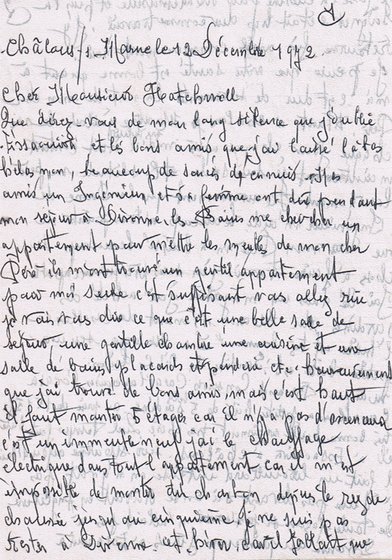 Châlons s/ Marne le 12 Décembre 1972.
Cher Monsieur
Que direz-vous de mon long silence que j'oublie
et les bons amis que j'ai laissé là bas
bien, non, beaucoup de soucis, d'ennuis. Mes
amis un Ingénieur et sa femme ont du pendant
mon séjour à Divonne les Bains me chercher un
appartement pour mettre les meubles de mon cher
Père ils m'ont trouvé un gentil appartement
pour moi seule c'est suffisant vous allez rire
je vais vous dire ce que c'est une belle salle de
séjour une gentille chambre une cuisine et une
salle de bains, placards et penderie etc. heureusement
que j'ai trouvé de bons amis, mais c'est haut
il faut monter 5 étages car il n'y a pas d'ascenseur
c'est un immeuble neuf j'ai le chauffage
électrique dans tout l'appartement car il m'est
impossible de monter du charbon depuis le rez de
chaussée jusqu'au cinquième je ne suis pas
restée à Divonne et car il fallait que